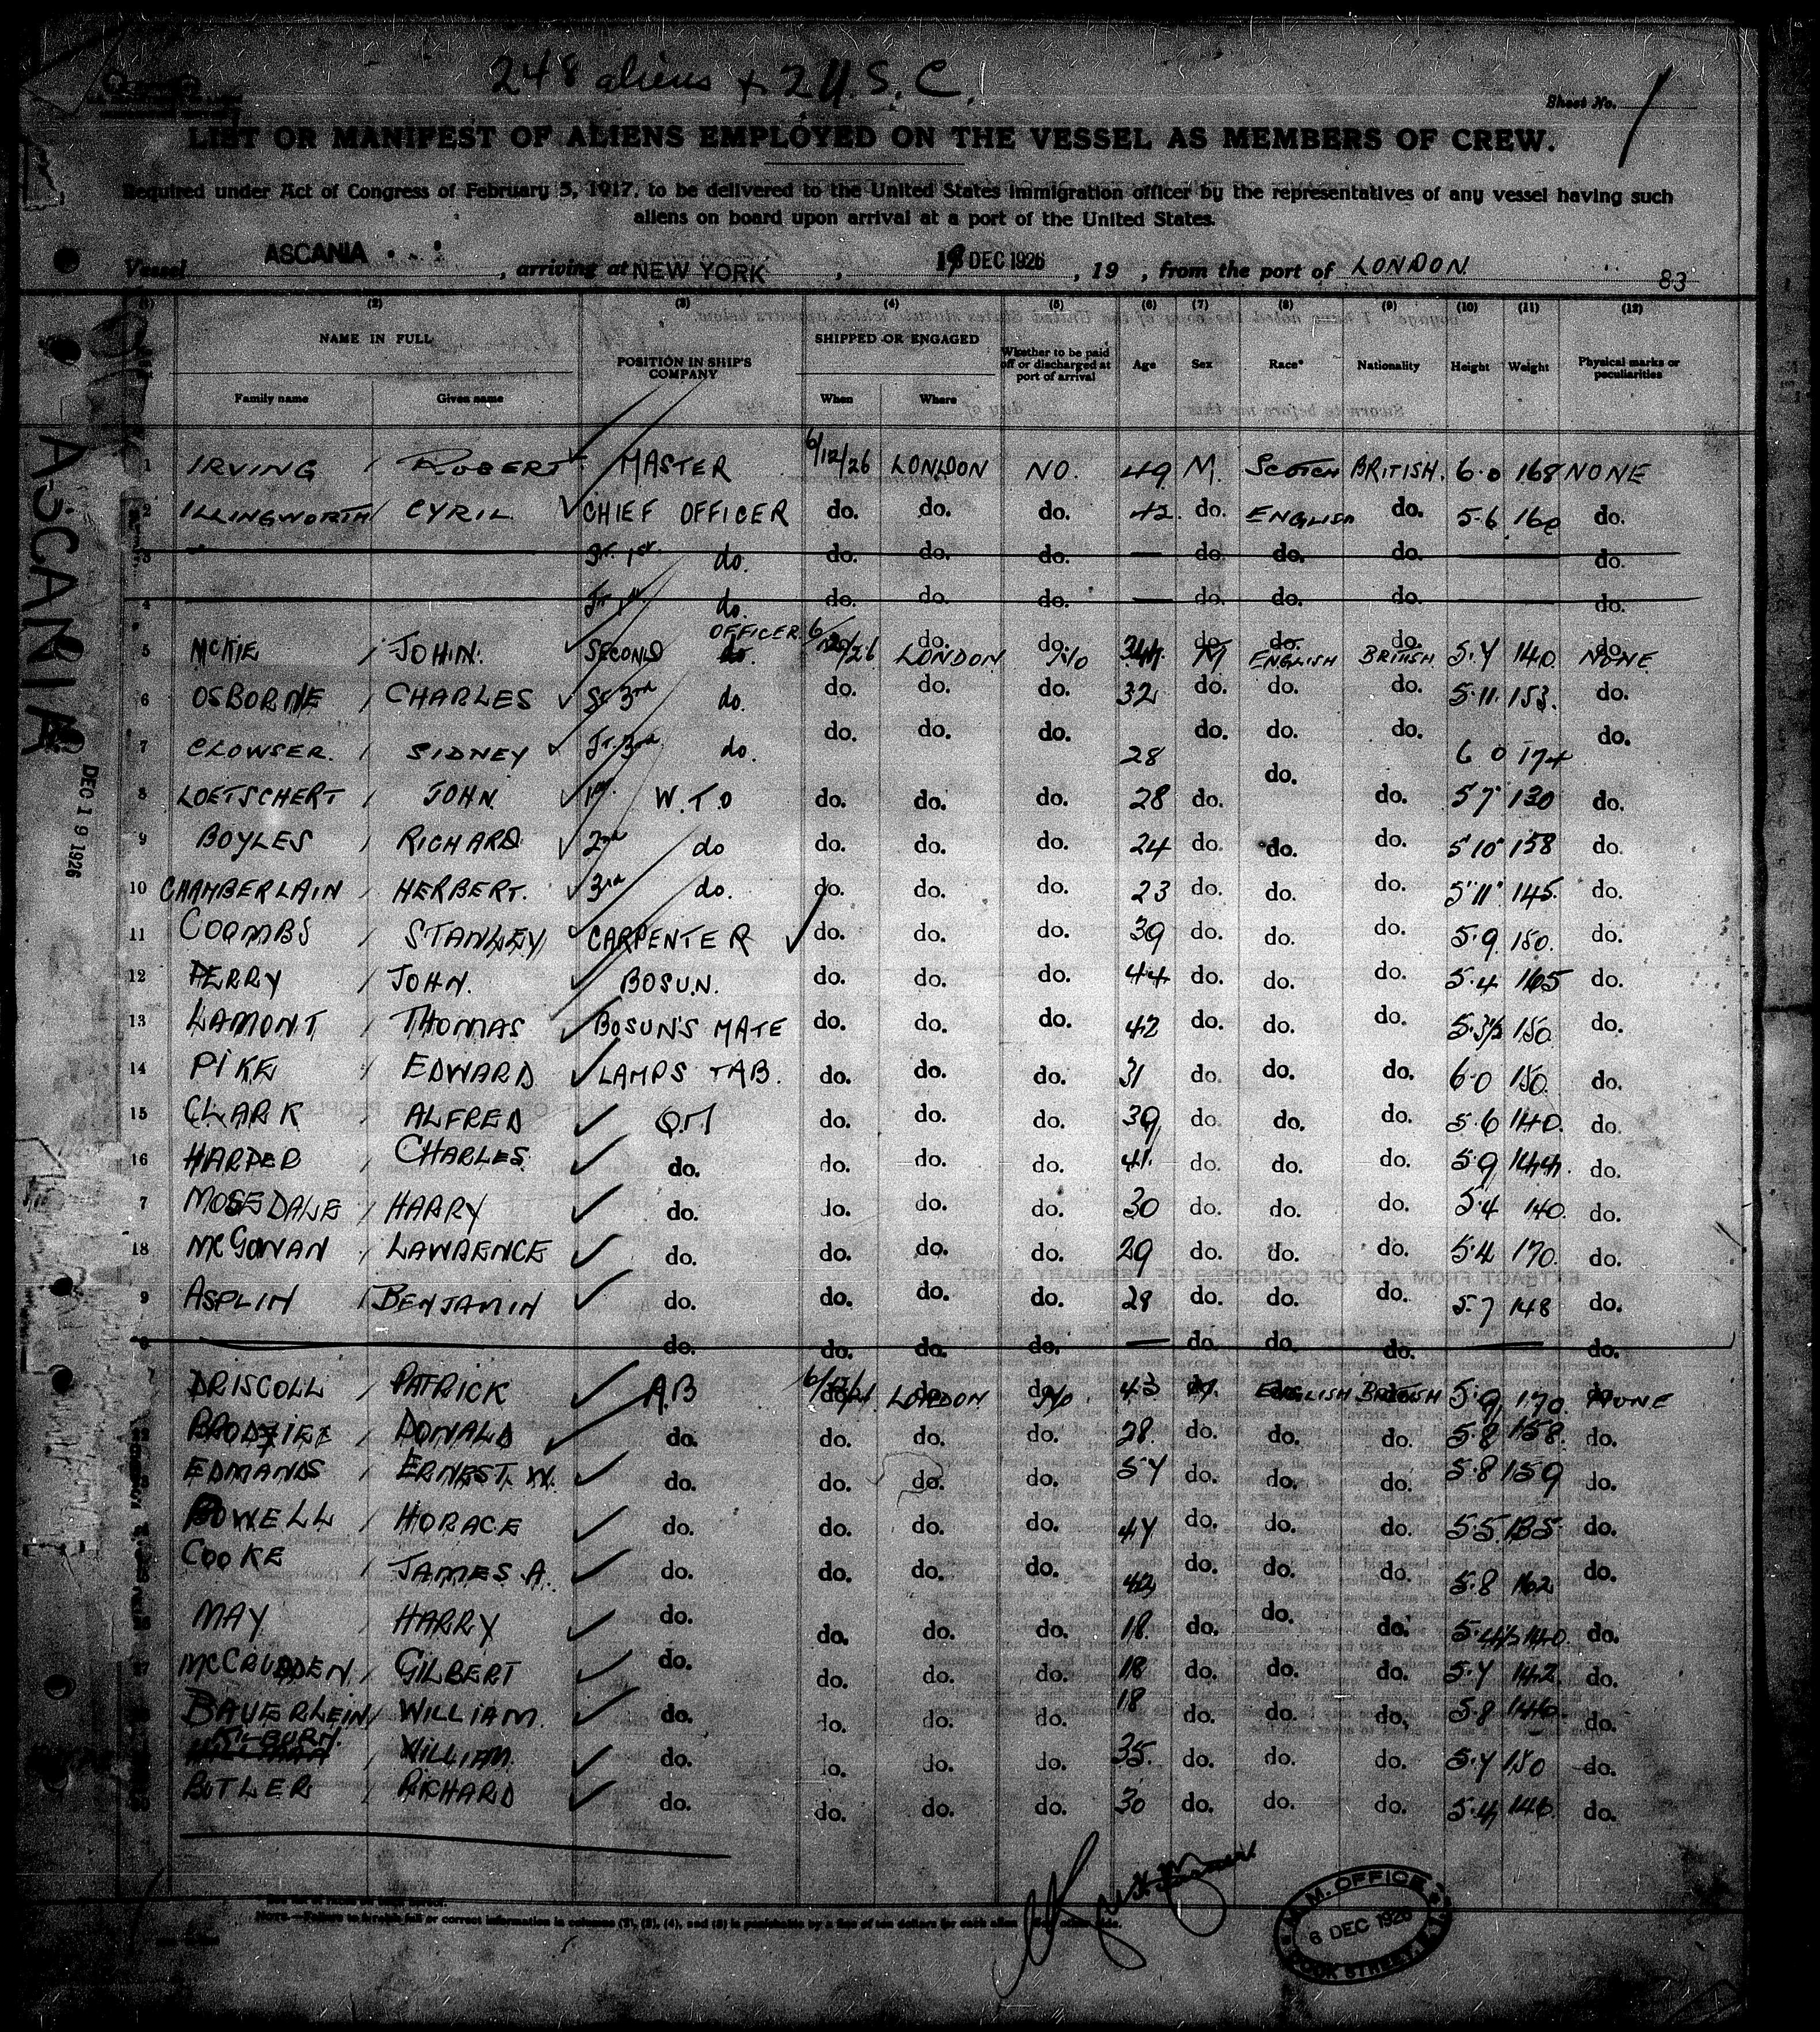 248 aliens + 2 U.S.C.
Sheet No. 1
LIST OR MANIFEST OF ALIENS EMPLOYED ON THE VESSEL AS MEMBERS OF CREW.
Required under Act of Congress of February 5, 1917, to be delivered to the United States immigration officer by the representatives of any vessel having such
aliens on board upon arrival at a port of the United States.
Vessel ASCANIA, arriving at NEW YORK, DEC 1926, 19 , from the port of LONDON
83
(1) (2) (3) (4) (5) (6) (7) (8) (9) (10) (11) (12)
NAME IN FULL POSITION IN SHIP'S COMPANY SHIPPED OR ENGAGED Whether to be paid off or discharged at port of arrival Age Sex Race* Nationality Height Weight Physical marks or peculiarities
Family name Given name When Where
1 IRVING ROBERT MASTER 6/12/26 LONDON NO. 49 M. SCOTCH BRITISH. 6·0 168 NONE
2 ILLINGWORTH CYRIL CHIEF OFFICER do. do. do. 42 do. ENGLISH do. 5·6 160 do.
3 Sr. 1st. do. do. do. do. — do. do. do. do.
4 Jr 1st do. do. do. do. — do. do. do. do.
5 McKIE JOHN. SECOND OFFICER LONDON No M ENGLISH BRITISH 5·7 140 NONE
6 OSBORNE CHARLES Sr 3rd do. do. do. do. 32 do. do. do. 5·11 153. do.
7 CLOWSER. SIDNEY Jr. 3rd do. do. do. do. 28 do. do. do. 6 0 174 do.
8 LOETSCHERT JOHN 1st. W.T.O do. do. do. 28 do. do. do. 5 7 130 do.
9 BOYLES RICHARD 2nd do do. do. do. 24 do. do. do. 5 10 158 do.
10 CHAMBERLAIN HERBERT. 3rd do. do. do. do. 23 do. do. do. 5 11 145. do.
11 COOMBS STANLEY CARPENTER do. do. do. 39 do. do. do. 5·9 150. do.
12 PERRY JOHN. BOSUN. do. do. do. 44 do. do. do. 5·4 165 do.
13 LAMONT THOMAS BOSUN'S MATE do. do. do. 42 do. do. do. 5·3½ 150 do.
14 PIKE EDWARD LAMPS TAB. do. do. do. 31 do. do. do. 6·0 150. do.
15 CLARK ALFRED Q.M do. do. do. 39 do. do. do. 5·6 140. do.
16 HARPER CHARLES. do. do. do. do. 41. do. do. do. 5·9 144. do.
7 MOSEDALE HARRY do. do. do. do. 30 do. do. do. 5·4 140. do.
18 McGOWAN LAWRENCE do. do. do. do. 29 do. do. do. 5·4 170. do.
9 ASPLIN BENJAMIN do. do. do. do. 28 do. do. do. 5·7 148 do.
do. do. do. do. — do. do. do. — do.
DRISCOLL PATRICK A.B LONDON No 43 M. ENGLISH BRITISH 5·9 170. NONE
DONALD do. do. do. do. 28. do. do. do. 5·8 158. do.
EDMANDS ERNEST. W. do. do. do. do. 57 do. do. do. 5·8 159 do.
HORACE do. do. do. do. 47 do. do. do. 5·5 135 do.
COOKE JAMES A. do. do. do. do. 42 do. do. do. 5·8 162 do.
MAY HARRY do. do. do. do. 18. do. do. do. 5·4½ 140. do.
McCRUDDEN GILBERT do. do. do. do. 18 do. do. do. 5·7 142 do.
BAUERLEIN WILLIAM. do. do. do. do. 18 do. do. do. 5·8 146. do.
WILLIAM. do. do. do. do. 35. do. do. do. 5·7 150 do.
BUTLER RICHARD do. do. do. do. 30 do. do. do. 5·4 146. do.
NOTE.—Failure to furnish full or correct information in columns (2), (3), (4), and (5) is punishable by a fine of ten dollars for each alien
M.M. OFFICE
6 DEC 1926
ASCANIA
DEC 19 1926